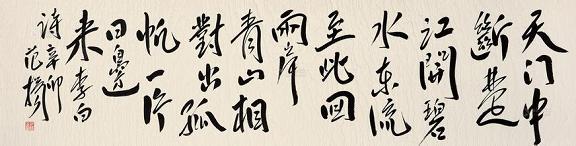 天门中
断楚
江開碧
水东流
至此回
兩岸
青山相
對出孤
帆一片
日邊
来李白
诗辛卯
范揚